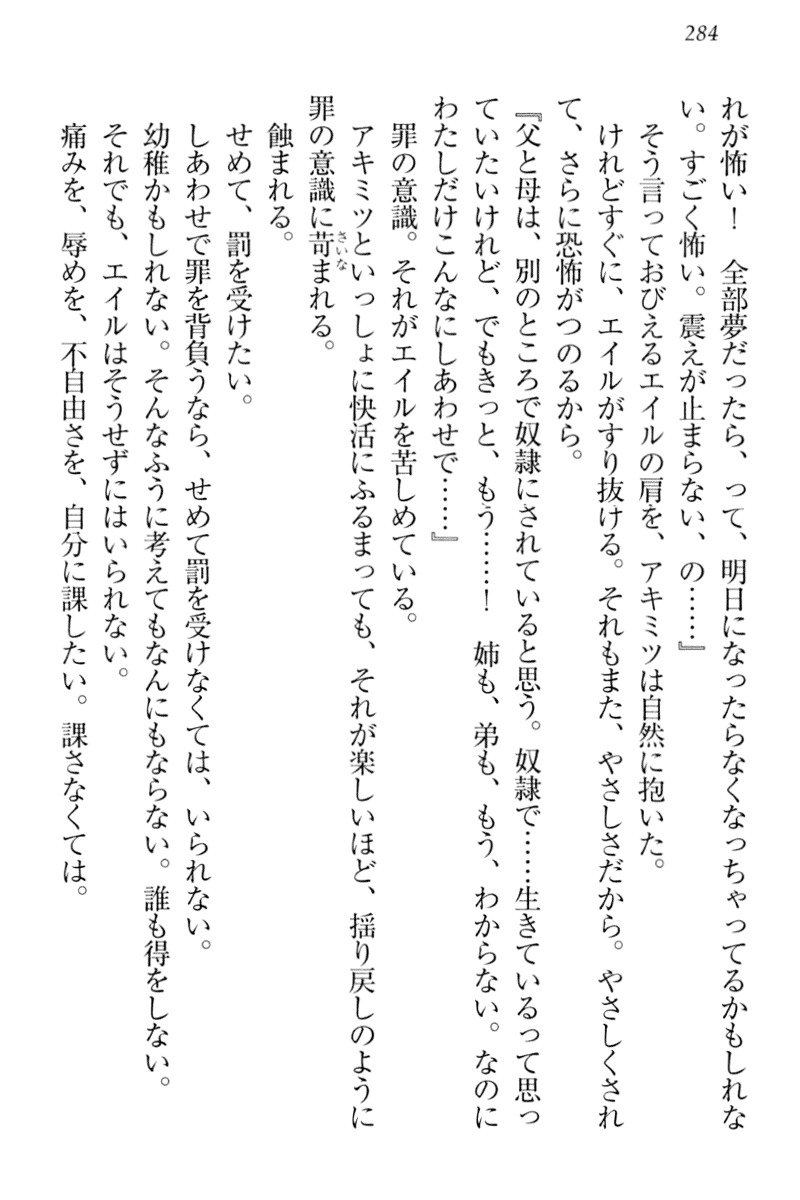 284
れが怖い！　全部夢だったら、って、明日になったらなくなっちゃってるかもしれな
い。すごく怖い。震えが止まらない、の……』
そう言っておびえるエイルの肩を、アキミツは自然に抱いた。
けれどすぐに、エイルがすり抜ける。それもまた、やさしさだから。やさしくされ
て、さらに恐怖がつのるから。
『父と母は、別のところで奴隷にされていると思う。奴隷で……生きているって思っ
ていたいけれど、でもきっと、もう……！　姉も、弟も、もう、わからない。なのに
わたしだけこんなにしあわせで……』
罪の意識。それがエイルを苦しめている。
アキミツといっしょに快活にふるまっても、それが楽しいほど、揺り戻しのように
罪の意識に苛まれる。
さいな
蝕まれる。
せめて、罰を受けたい。
しあわせで罪を背負うなら、せめて罰を受けなくては、いられない。
幼稚かもしれない。そんなふうに考えてもなんにもならない。誰も得をしない。
それでも、エイルはそうせずにはいられない。
痛みを、辱めを、不自由さを、自分に課したい。課さなくては。